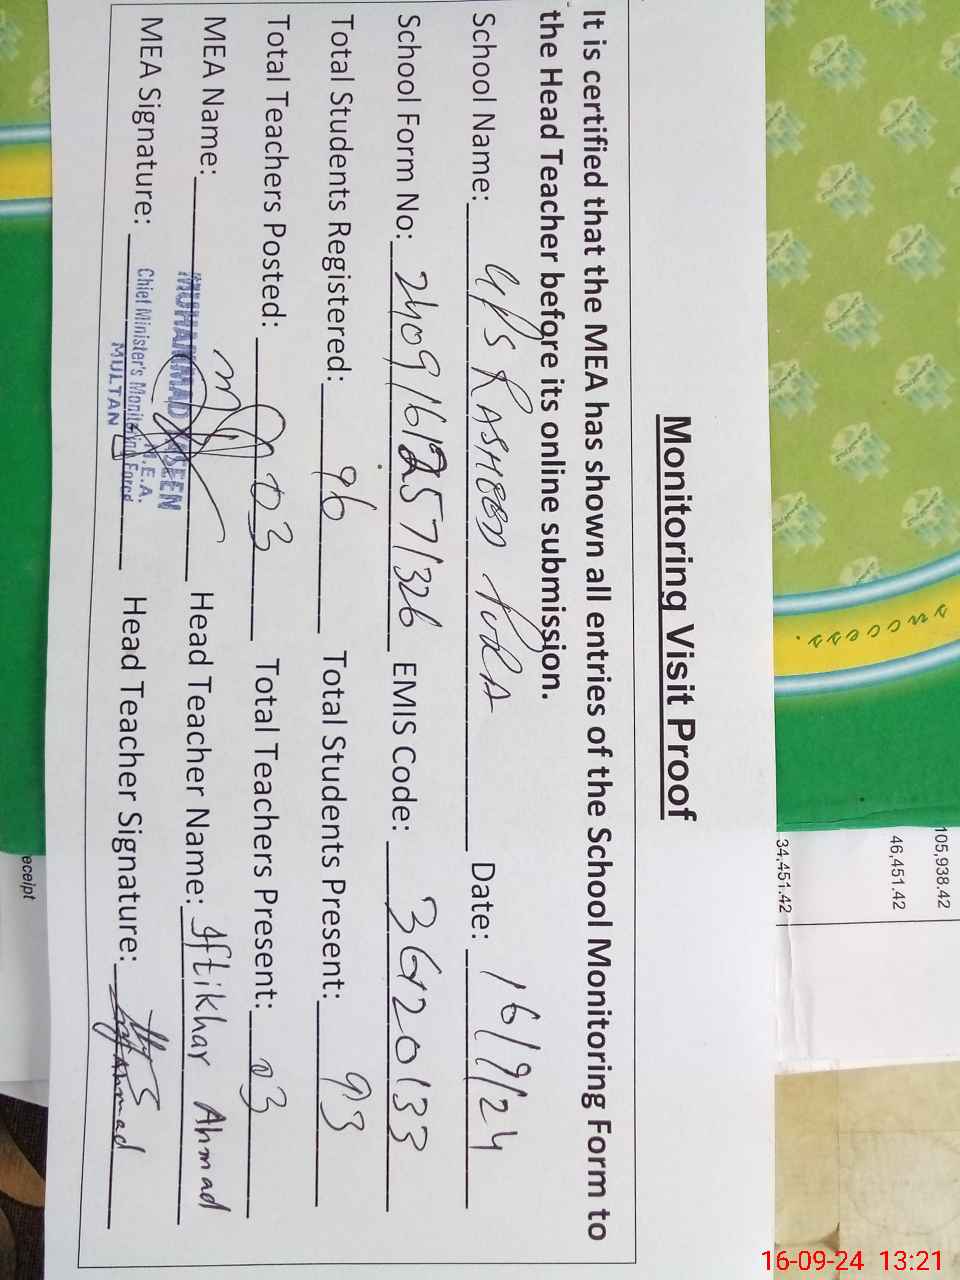 Monitoring Visit Proof
It is certified that the MEA has shown all entries of the School Monitoring Form to
the Head Teacher before its online submission.
School Name: GPS RASHEED PURA Date: 16/9/24
School Form No: 240916122571326 EMIS Code: 36120133
Total Students Registered: 96 Total Students Present: 93
Total Teachers Posted: 03 Total Teachers Present: 03
MEA Name: MUHAMMAD YASEEN Head Teacher Name: Iftikhar Ahmad
MEA Signature: Head Teacher Signature: Ahmad
M.E.A.
Chief Minister's Monitoring Force
MULTAN
success.
105,938.42
46,451.42
34,451.42
eceipt
16-09-24 13:21